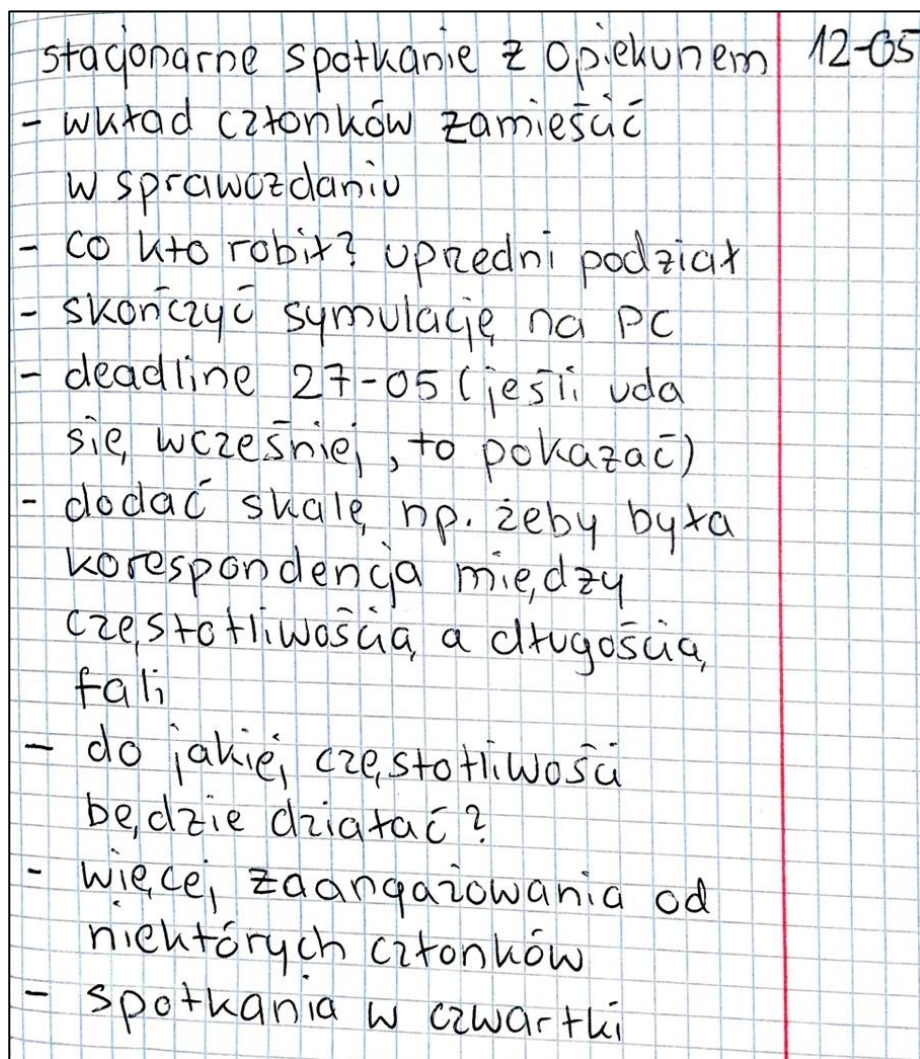 stacjonarne spotkanie z opiekunem 12-05
- wkład członków zamieścić
w sprawozdaniu
- co kto robił? uprzedni podział
- skończyć symulację na PC
- deadline 27-05 (jeśli uda
się wcześniej, to pokazać)
- dodać skalę np. żeby była
korespondencja między
częstotliwością a długością
fali
- do jakiej częstotliwości
będzie działać?
- więcej zaangażowania od
niektórych członków
- spotkania w czwartki